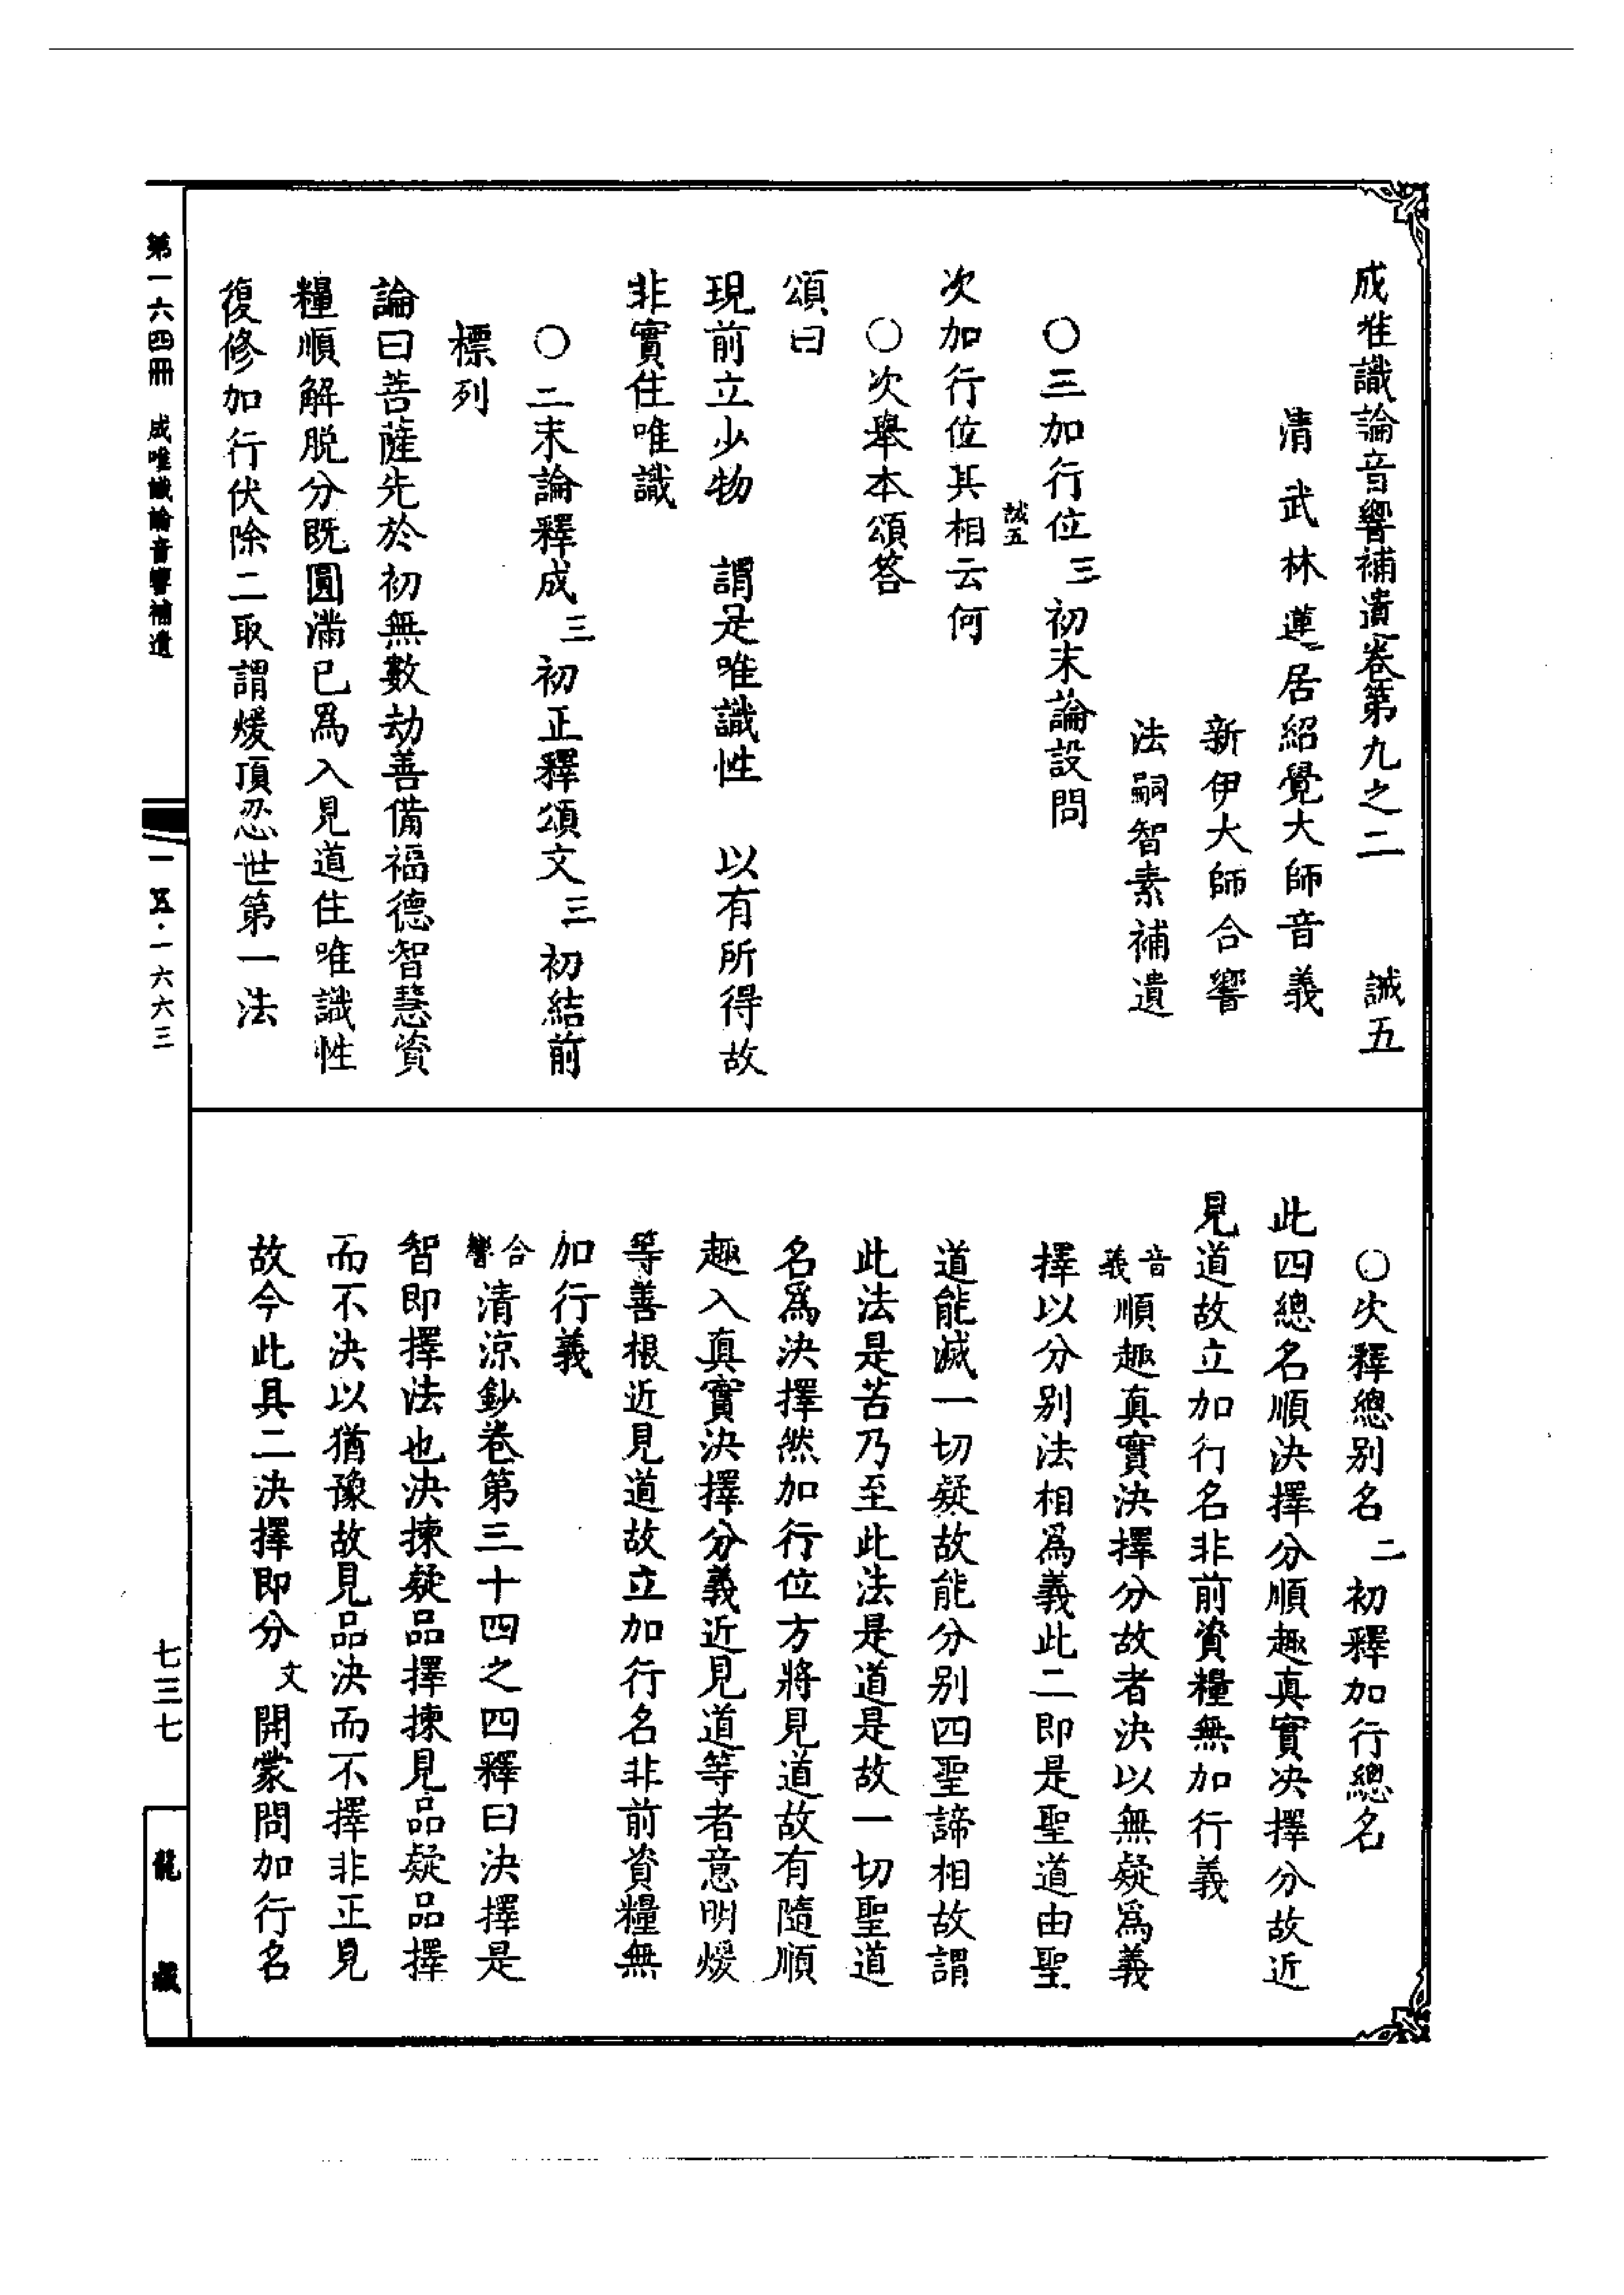 成唯識論音響補遺卷第九之二　誠五
清武林蓮居紹覺大師音義
新伊大師合響
法嗣智素補遺
〇三加行位三初末論設問
誠五
次加行位其相云何
〇次舉本頌答
頌曰
現前立少物　謂是唯識性　以有所得故
非實住唯識
〇二末論釋成三初正釋頌文三初結前
標列
論曰菩薩先於初無數劫善備福德智慧資
糧順解脫分既圓滿已為入見道住唯識性
復修加行伏除二取謂煖頂忍世第一法
〇次釋總別名二初釋加行總名
此四總名順決擇分順趣真實決擇分故近
見道故立加行名非前資糧無加行義
音義順趣真實決擇分故者決以無疑為義
擇以分別法相為義此二即是聖道由聖
道能滅一切疑故能分別四聖諦相故謂
此法是苦乃至此法是道是故一切聖道
名為決擇然加行位方將見道故有隨順
趣入真實決擇分義近見道等者意明煖
等善根近見道故立加行名非前資糧無
加行義
合響清涼鈔卷第三十四之四釋曰決擇是
智即擇法也決揀疑品擇揀見品疑品擇
而不決以猶豫故見品決而不擇非正見
故今此具二決擇即分文開蒙問加行名
第一六四冊　成唯識論音響補遺
一五·一六六三
七三七
龍藏